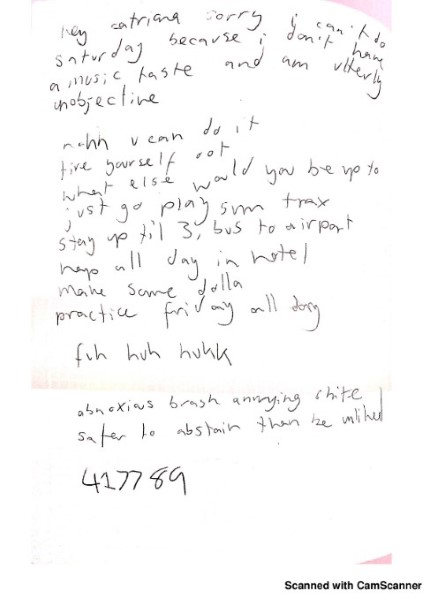 hey catriana sorry i can't do
saturday because i don't have
a music taste and am utterly
unobjective
nahh u can do it
tire yourself out
what else would you be up to
just go play sum trax
stay up til 3, bus to airport
nap all day in hotel
make some dolla
practice friday all day
fuh huh huhk
abnoxious brash annoying shite
safer to abstain than be unliked
417789
Scanned with CamScanner